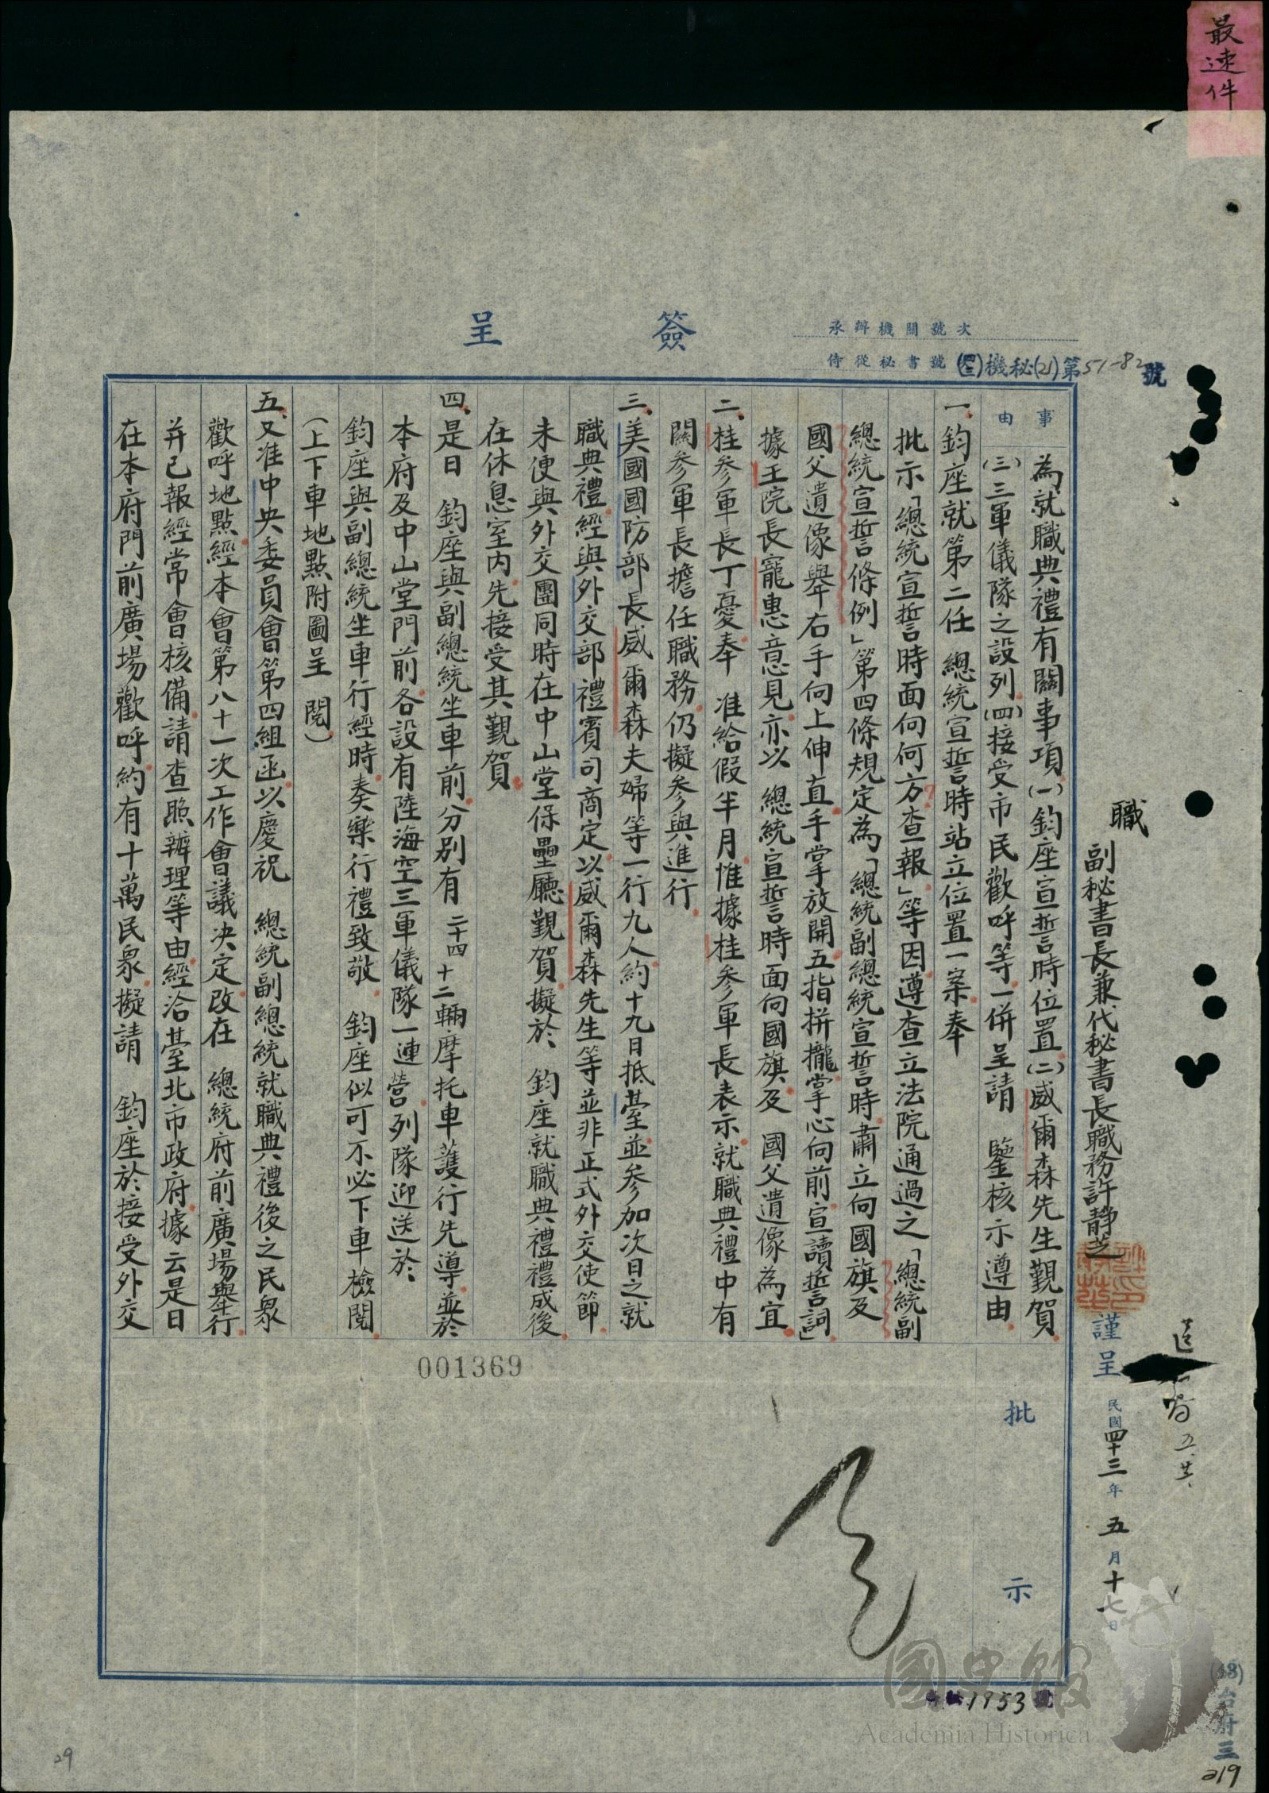 最速件
簽呈
承辦機關號次
侍從秘書號 機秘(21)第51-82號
職
副秘書長兼代秘書長職務許靜芝 謹呈 民國四十三年五月十七日
事由
為就職典禮有關事項(一)鈞座宣誓時位置(二)威爾森先生覲賀
(三)三軍儀隊之設列(四)接受市民歡呼等一併呈請 鑒核示遵由
一、鈞座就第二任 總統宣誓時站立位置一案奉
批示「總統宣誓時面向何方查報」等因遵查立法院通過之「總統副
總統宣誓條例」第四條規定為「總統副總統宣誓時肅立向國旗及
國父遺像舉右手向上伸直手掌放開五指拼攏掌心向前宣讀誓詞」
據王院長寵惠意見亦以 總統宣誓時面向國旗及 國父遺像為宜
二、桂參軍長丁憂奉 准給假半月惟據桂參軍長表示就職典禮中有
關參軍長擔任職務仍擬參與進行
三、美國國防部長威爾森夫婦等一行九人約十九日抵臺並參加次日之就
職典禮經與外交部禮賓司商定以威爾森先生等並非正式外交使節
未便與外交團同時在中山堂保壘廳覲賀擬於 鈞座就職典禮禮成後
在休息室內先接受其覲賀
四、是日 鈞座與副總統坐車前分別有二十四十二輛摩托車護行先導並於
本府及中山堂門前各設有陸海空三軍儀隊一連營列隊迎送於
鈞座與副總統坐車行經時奏樂行禮致敬 鈞座似可不必下車檢閱
(上下車地點附圖呈 閱)
五、又准中央委員會第四組函以慶祝 總統副總統就職典禮後之民衆
歡呼地點經本會第八十一次工作會議決定改在 總統府前廣場舉行
并已報經常會核備請查照辦理等由經洽臺北市政府據云是日
在本府門前廣場歡呼約有十萬民衆擬請 鈞座於接受外交
001369
批示
1953號
國史館
Academia Historica
(43)台府三
219
29